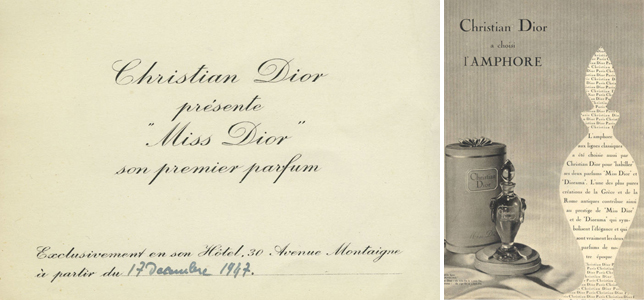 Christian Dior
présente
"Miss Dior"
son premier parfum
Exclusivement en son Hôtel, 30 Avenue Montaigne
à partir du 17 Decembre 1947.
Christian Dior
a choisi
l'AMPHORE
Christian
Dior
L'amphore
aux lignes classiques
a été choisie aussi par
Christian Dior pour habiller
ses deux parfums 'Miss Dior' et
'Diorama'. L'une des plus pures
créations de la Grèce et de la
Rome antiques contribue ainsi
au prestige de 'Miss Dior'
et de 'Diorama' qui sym-
bolisent l'élégance et qui
sont vraiment les deux
parfums de no-
tre époque